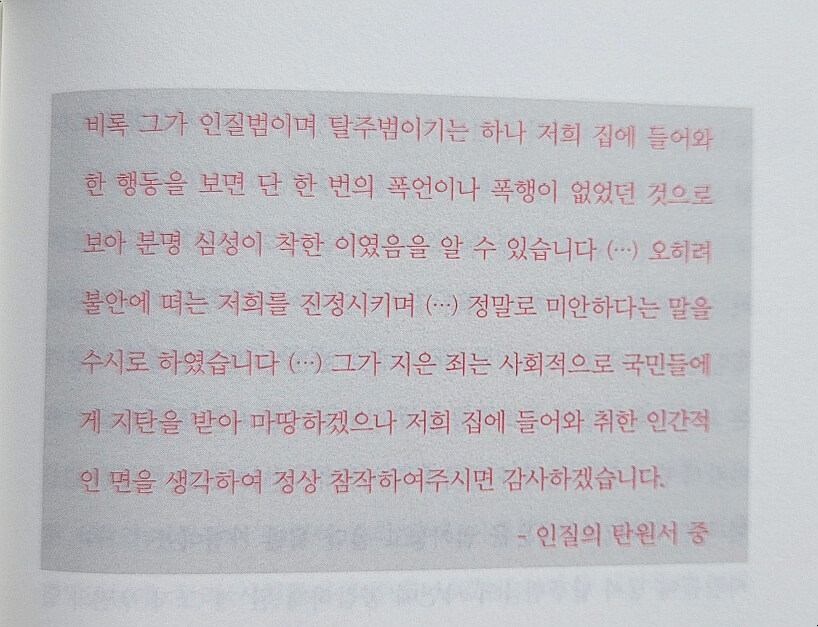 비록 그가 인질범이며 탈주범이기는 하나 저희 집에 들어와
한 행동을 보면 단 한 번의 폭언이나 폭행이 없었던 것으로
보아 분명 심성이 착한 이였음을 알 수 있습니다 (…) 오히려
불안에 떠는 저희를 진정시키며 (…) 정말로 미안하다는 말을
수시로 하였습니다 (…) 그가 지은 죄는 사회적으로 국민들에
게 지탄을 받아 마땅하겠으나 저희 집에 들어와 취한 인간적
인 면을 생각하여 정상 참작하여주시면 감사하겠습니다.
- 인질의 탄원서 중